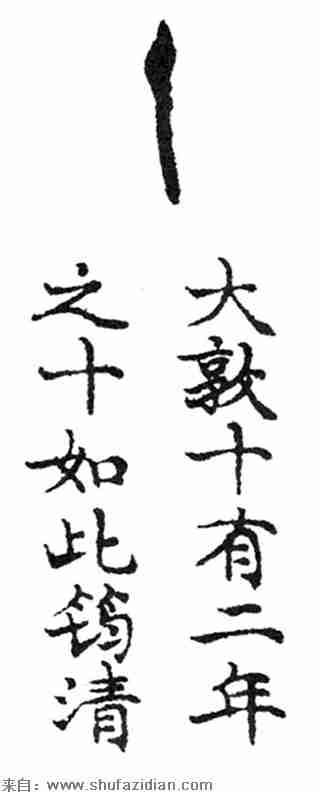 大敦十有二年
之十如此筠清
来自：www.shufazidian.com